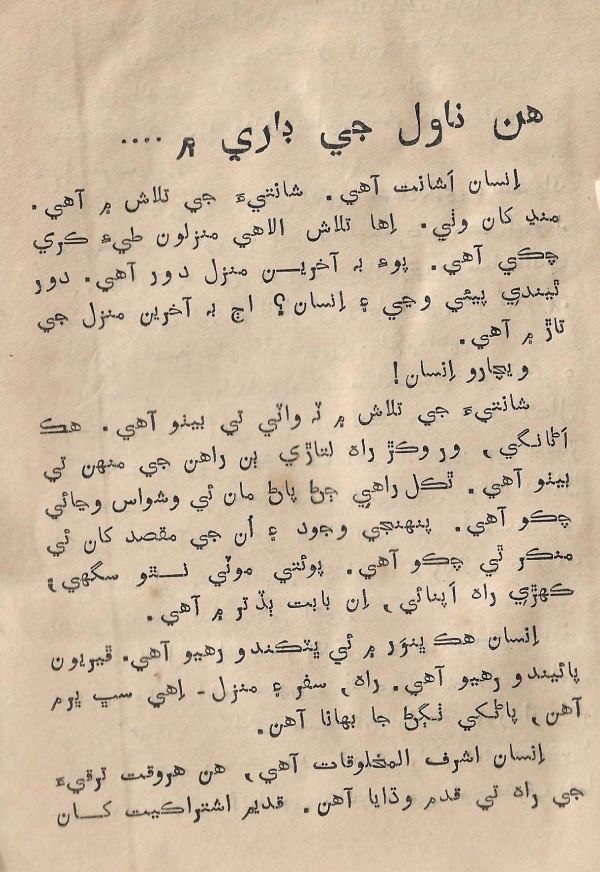 هن ناول جي باري ۾ ....
اِنسان اَشانت آهي. شانتيءَ جي تلاش ۾ آهي.
منڍ کان وٺي. اِها تلاش الاهي منزلون طيءَ ڪري
چڪي آهي. پوءِ بہ آخريـــن منزل دور آهي. دور
ٿيندي پيئي وڃي ۽ اِنسان؟ اڄ بہ آخرين منزل جي
تاڙ ۾ آهي.
ويچارو اِنسان!
شانتيءَ جي تلاش ۾ ٽہ واٽي تي بيٺو آهي. هڪ
اَڻانگي، ور وڪڙ راهہ لتاڙي ٻن راهن جي منهن تي
بيٺو آهي. ٿڪل راهي ڄڻ پاڻ مان ئي وشواس وڃائي
چڪو آهي. پنهنجي وجود ۽ اُن جي مقصد کان ئي
منڪر ٿي چڪو آهي. پوئتي موٽي نـــٿو سگهي،
ڪهڙي راهہ اَپنائي، اِن بابت ٻڏ تر ۾ آهي.
اِنسان هڪ ڀنوَر ۾ ئي ڀٽڪندو رهيو آهي. ڦيريون
پائيندو رهيو آهي. راهہ، سفر ۽ منزل - اِهي سڀ ڀرم
آهن، پاڻکي ٺڳڻ جا بهانا آهن.
اِنسان اشرف المخلوقات آهي، هن هروقت ترقيءَ
جي راهہ تي قدم وڌايا آهن. قديم اشتراڪيت کـــان